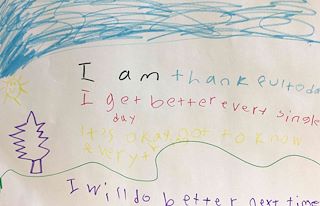 I am thankful toda
I get better every single
day
It is okay not to know
every
I will do better next time